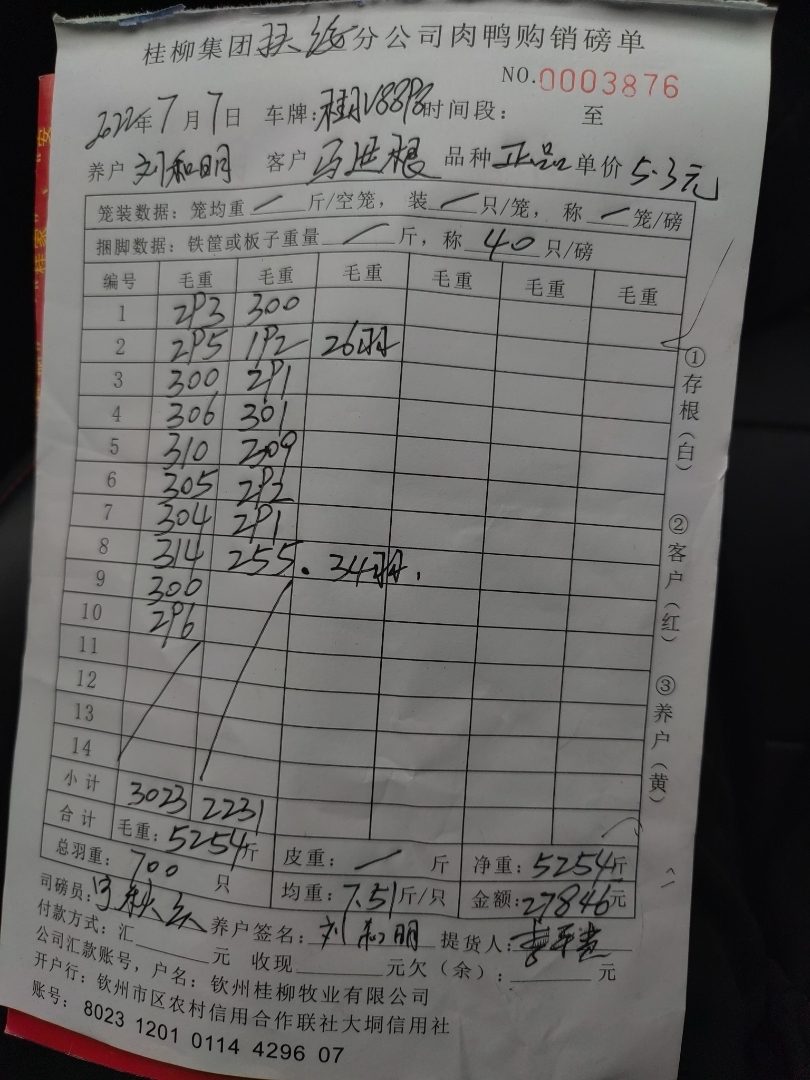 桂柳集团扶绥分公司肉鸭购销磅单
NO.0003876
2022年7月7日 车牌: 时间段: 至
养户 刘和明 客户 马进根 品种 正品 单价 5.3元
笼装数据:笼均重 / 斤/空笼,装 / 只/笼,称 / 笼/磅
捆脚数据:铁筐或板子重量 / 斤,称 40 只/磅
编号 毛重 毛重 毛重 毛重 毛重 毛重
1 293 300
2 295 192 26羽
3 300 291
4 306 301
5 310 309
6 305 292
7 304 291
8 314 255. 34羽.
9 300
10 296
11
12
13
14
小计 3023 2231
合计 毛重:5254斤 皮重: / 斤 净重:5254斤
总羽重: 700 只 均重:7.51斤/只 金额:27846元
司磅员: 养户签名:刘和明 提货人:
付款方式:汇 元 收现 元欠(余): 元
公司汇款账号,户名:钦州桂柳牧业有限公司
开户行:钦州市区农村信用合作联社大垌信用社
账号: 8023 1201 0114 4296 07
①存根(白)
②客户(红)
③养户(黄)